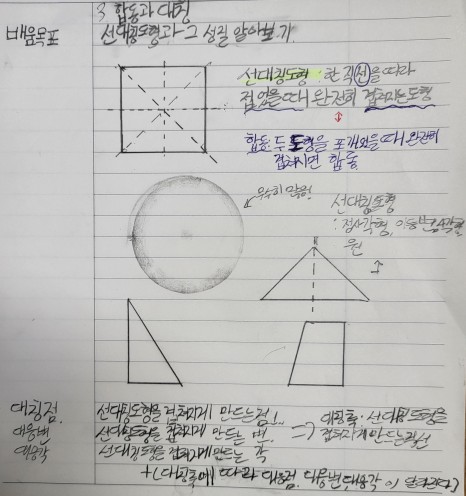 3. 합동과 대칭
배움목표 선대칭도형과 그 성질 알아보기.
선대칭도형 : 한 직선을 따라
접었을 때 완전히 겹쳐지는 도형
합동: 두 도형을 포개었을 때 완전히
겹쳐지면 합동
무수히 많음.
선대칭도형
: 정사각형, 이등변삼각형
원
대칭점 선대칭도형을 겹쳐지게 만드는 점
대응변 선대칭도형을 겹쳐지게 만드는 변
대응각 선대칭도형을 겹쳐지게 만드는 각
=> 대칭축: 선대칭도형을
겹쳐지게 만드는 직선
+(대칭축에 따라 대응점, 대응변, 대응각이 달라진다)